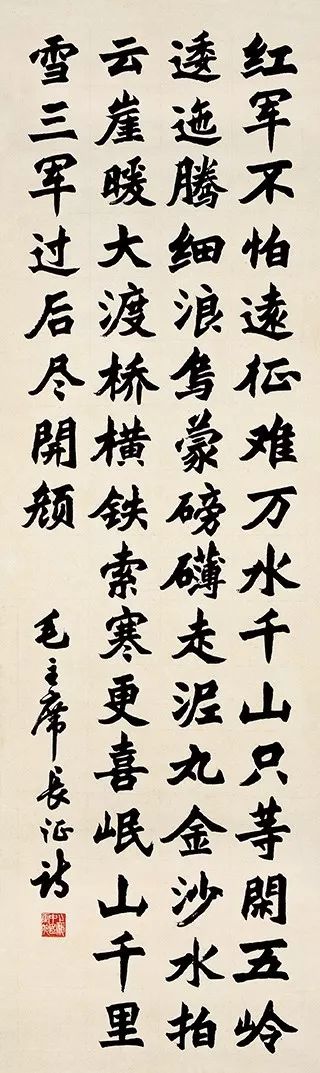 红军不怕遠征难万水千山只等閑五岭
逶迤腾细浪烏蒙磅礴走泥丸金沙水拍
云崖暖大渡桥横铁索寒更喜岷山千里
雪三军过后尽開颜
毛主席長征詩